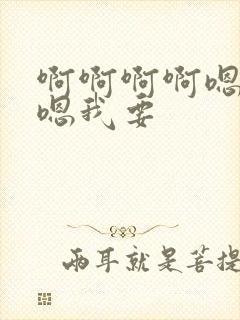 啊啊啊啊嗯
嗯我要
两耳就是菩提